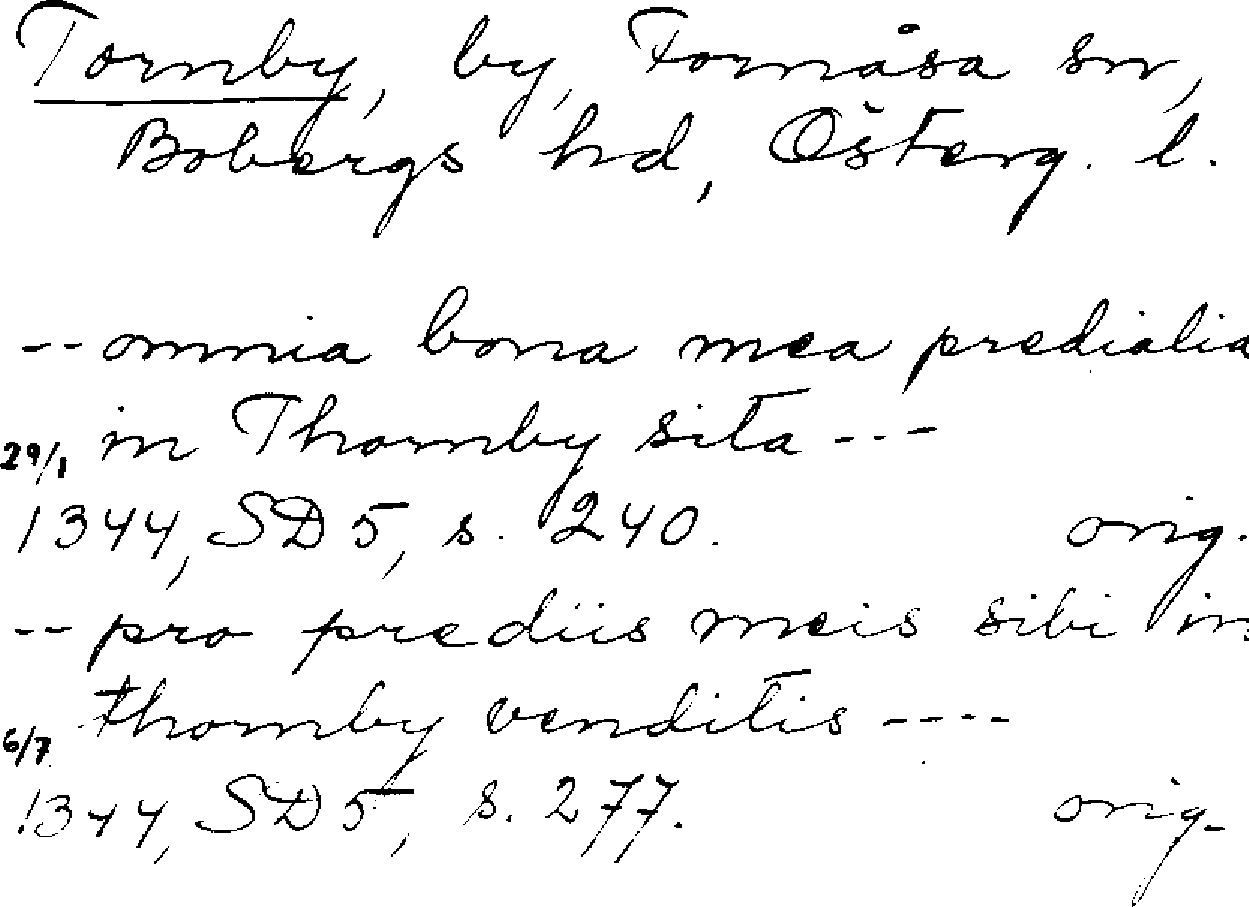 Tornby, by, Fornåsa sn,
Bobergs hd, Österg. l.
-- omnia bona mea predialia
29/1 in Thornby sita ---
1344, SD 5, s. 240. orig.
-- pro prediis meis sibi in
6/7 thornby venditis ----
1344, SD 5, s. 277. orig.